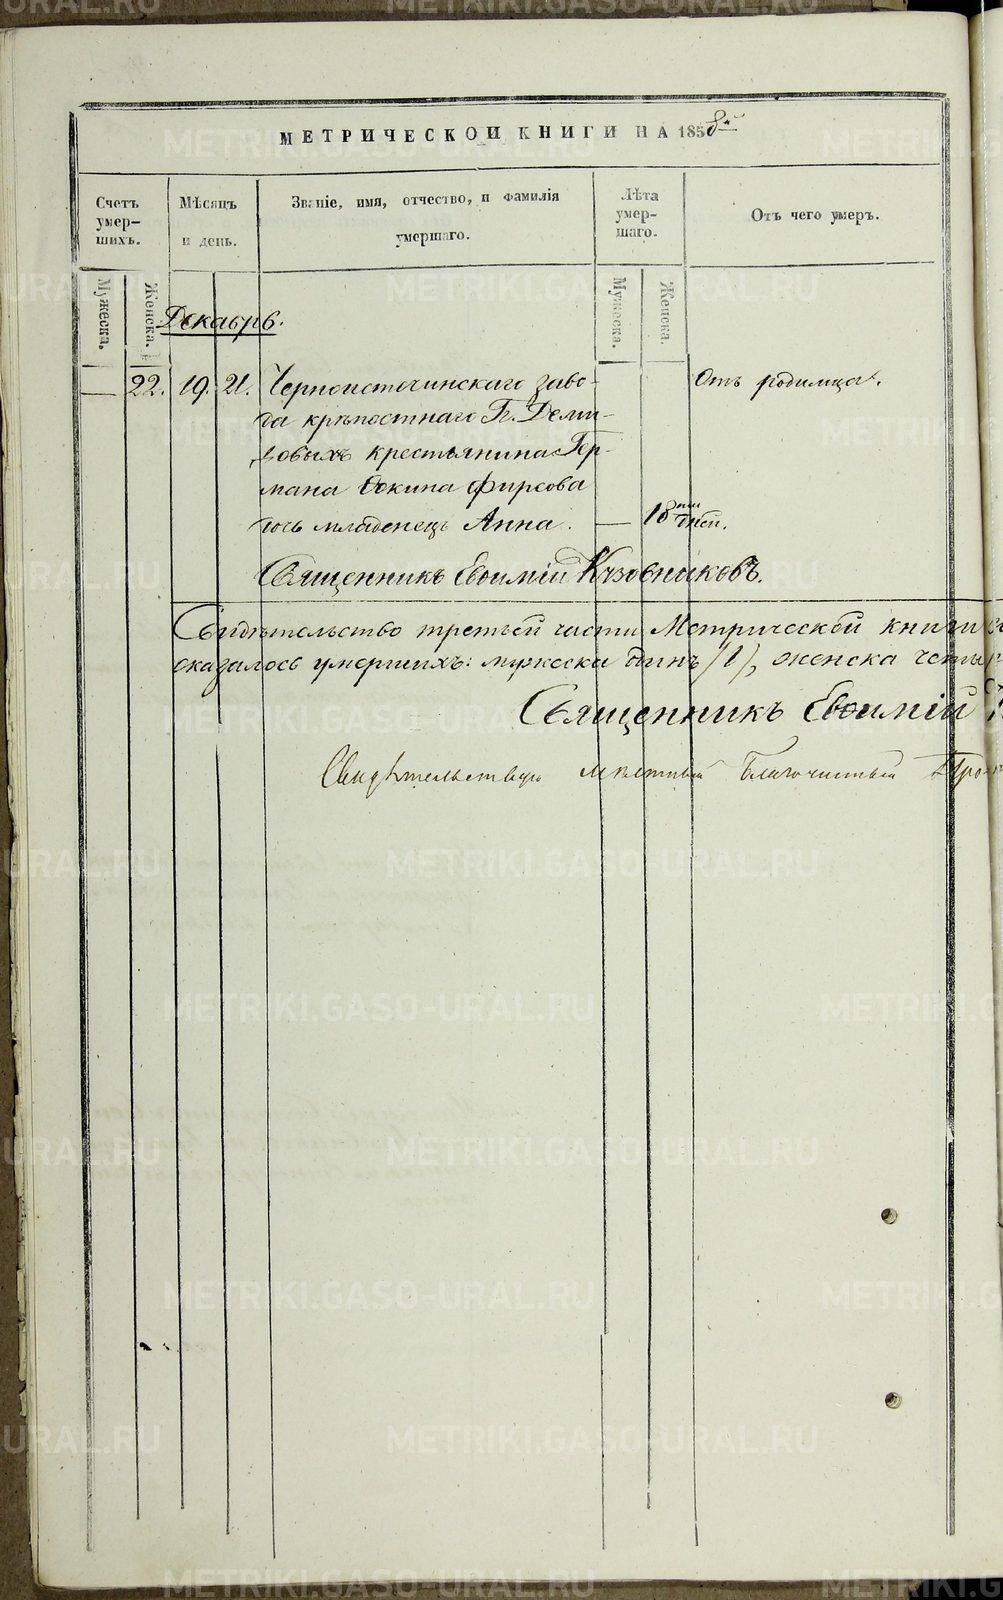 МЕТРИЧЕСКОЙ КНИГИ НА 1858й
Счетъ умер-шихъ.
Мѣсяцъ и день.
Званіе, имя, отчество, и фамилія умершаго.
Лѣта умер-шаго.
Отъ чего умеръ.
Мужеска.
Женска.
Мужеска.
Женска.
Декабрь.
— 22. 19. 21. Черноисточинскаго заво- Отъ родимца.
да крѣпостнаго Гг. Деми-
довыхъ крестьянина Гер-
мана Фокина Фирсова
дочь младенецъ Анна. — 18ти дней.
Священникъ Евѳимій Кузовниковъ.
Свидѣтельство третьей части Метрической книги
оказалось умершихъ: мужеска одинъ /1/, женска четы
Священникъ Евѳимій
Свидѣтельствую мѣстный Благочинный Про
METRIKI.GASO-URAL.RU